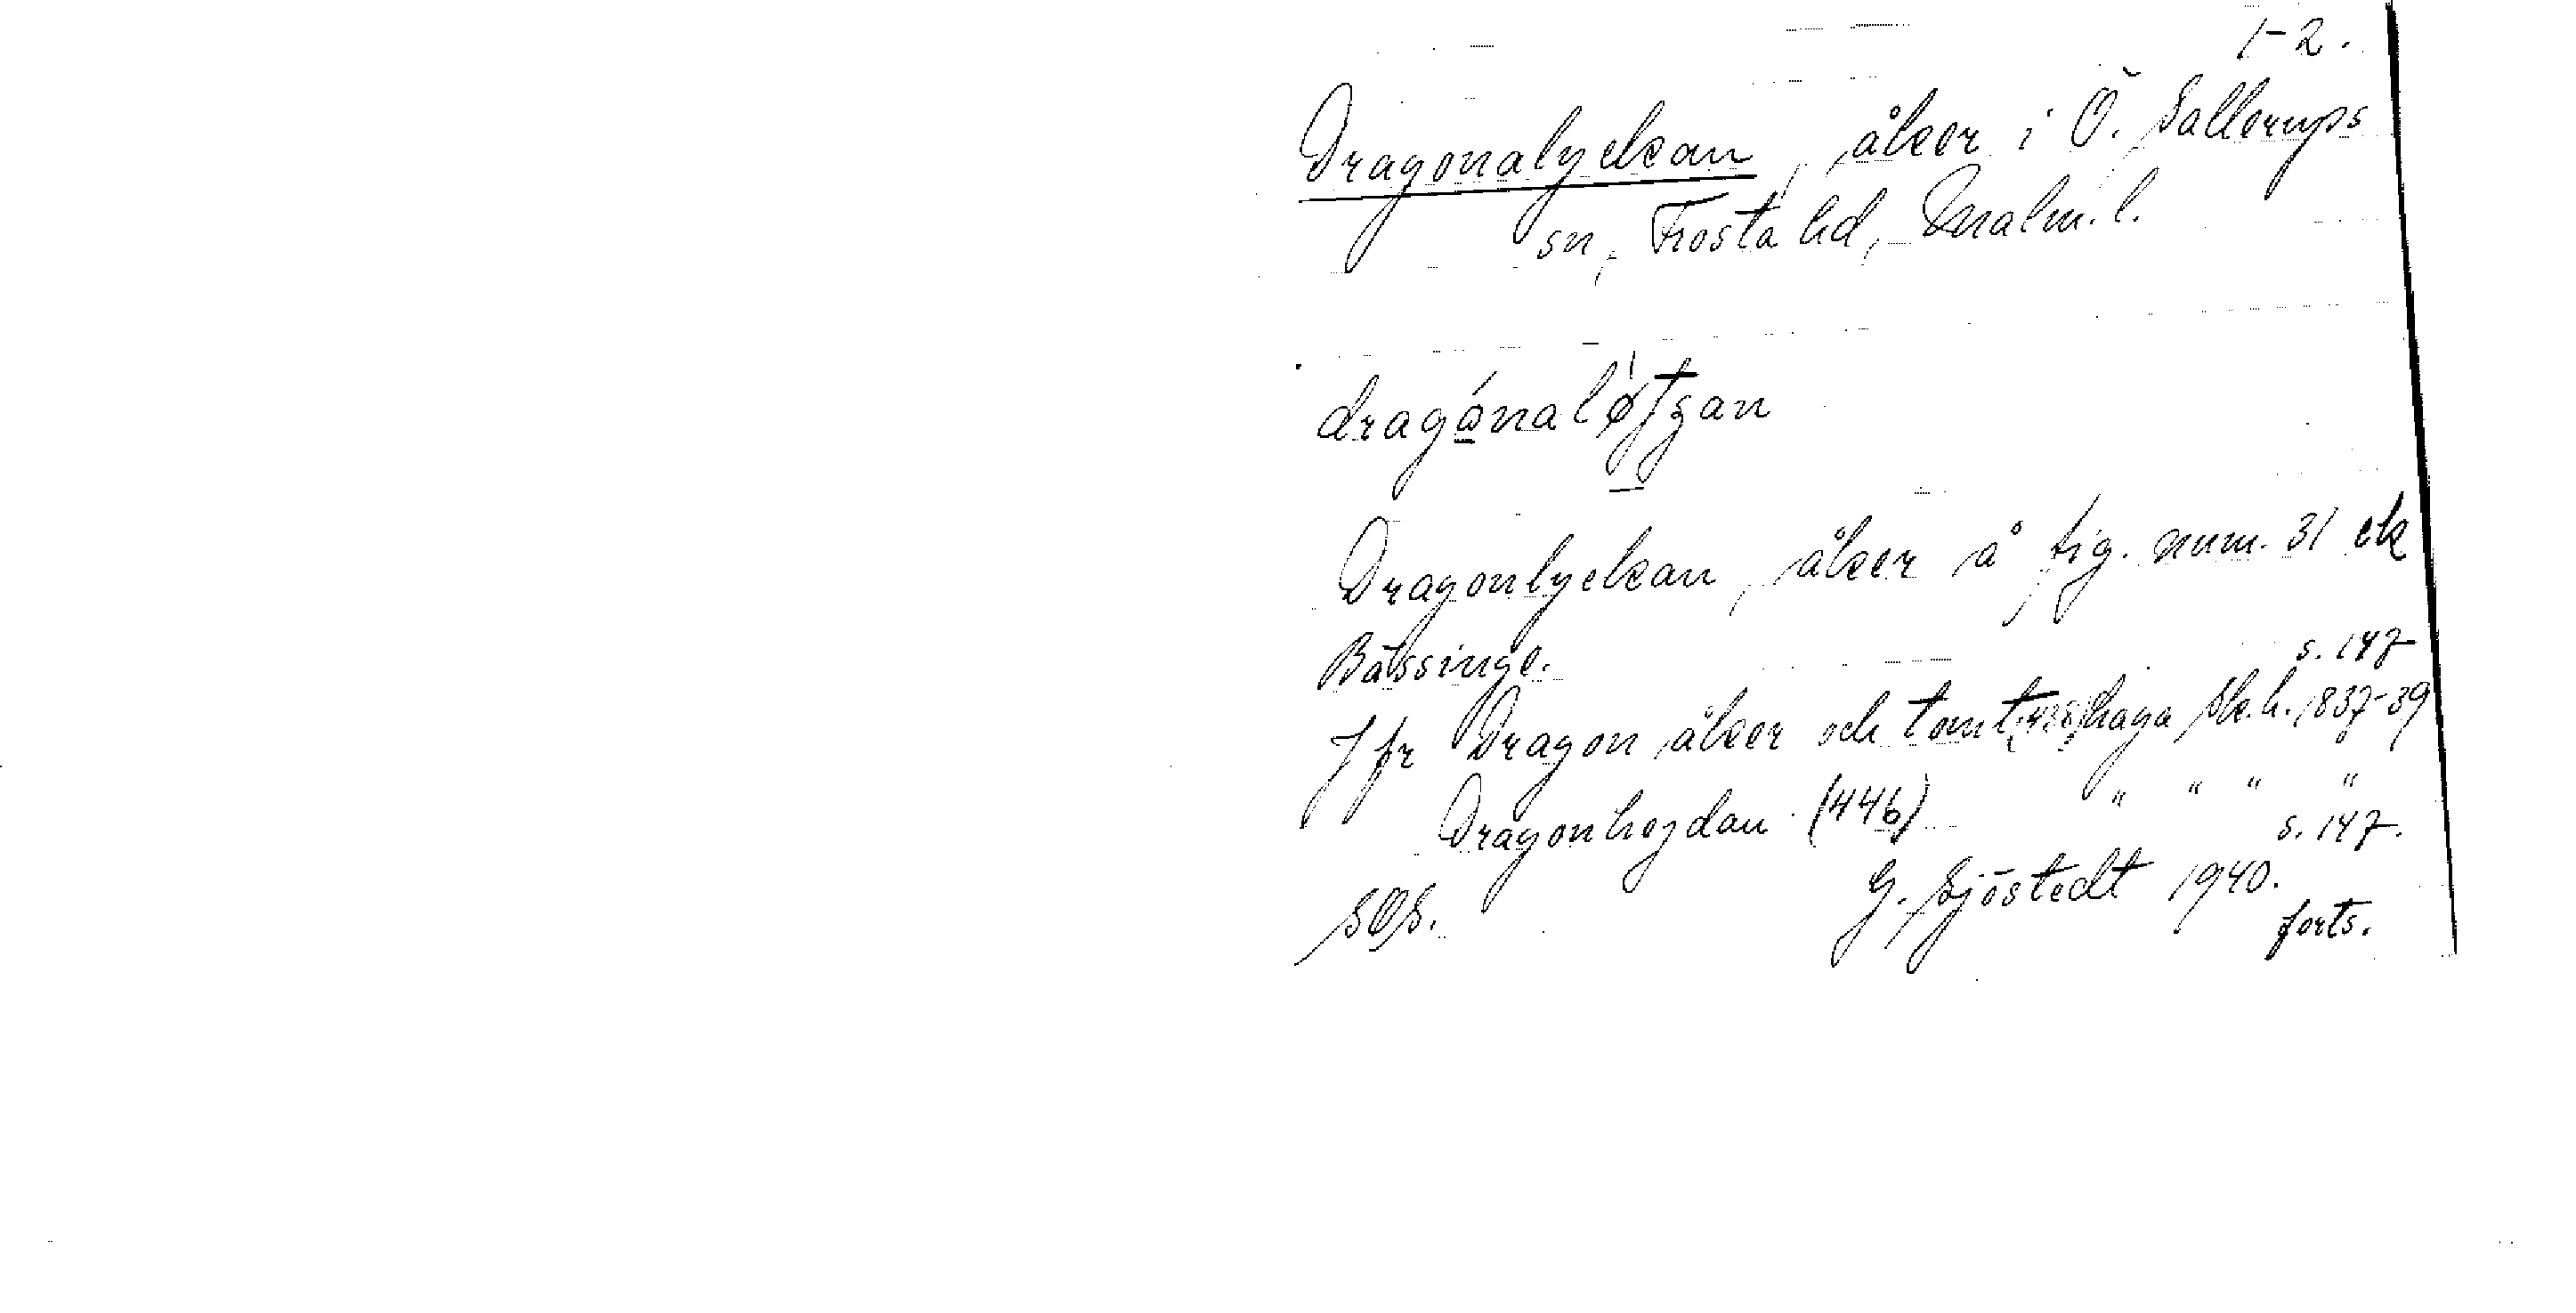 1-2.
Dragonalyckan, åker i Ö. Sallerups
sn, Frosta hd, Malm. l.
dragónaløtʃan
Dragonlyckan, åker å fig. num. 31 ek
Bässinge. s. 147
Jfr Dragon åker och tomt haga Sk.h. 1837-39
Dragonhejdan (446) " " " "
s. 147.
SOS. G. Sjöstedt 1940.
forts.